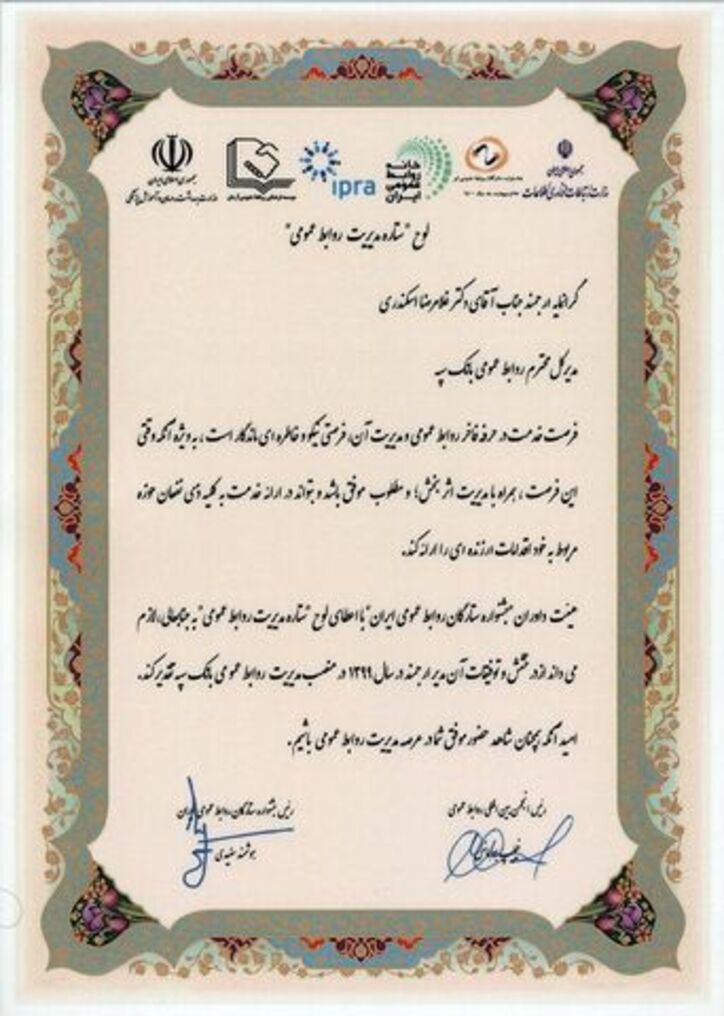 جمهوری اسلامی ایران
وزارت ارتباطات و فناوری اطلاعات
خانه
روابط
عمومی
ایران
ipra
جمهوری اسلامی ایران
وزارت بهداشت، درمان و آموزش پزشکی
لوح "ستاره مدیریت روابط عمومی"
گرانمایه ارجمند جناب آقای دکتر غلامرضا اسکندری
مدیر کل محترم روابط عمومی بانک سپه
فرصت خدمت در حرفه فاخر روابط عمومی و مدیریت آن، فرصتی نیکو و خاطره ای ماندگار است، به ویژه آنکه وقتی
این فرصت، همراه با مدیریت اثر بخش؛ و مطلوب موفق باشد و بتواند در ارائه خدمت به کلیه ذی نفعان حوزه
مربوط به خود اقدامات ارزنده ای را ارائه کند.
هیئت داوران جشنواره ستارگان روابط عمومی ایران "با اعطای لوح "ستاره مدیریت روابط عمومی" به جنابعالی، لازم
می داند از تلاش و توفیقات آن مدیر ارجمند در سال ۱۳۹۹ در منصب مدیریت روابط عمومی بانک سپه تقدیر کند.
امید آنکه همچنان شاهد حضور موفق شما در عرصه مدیریت روابط عمومی باشیم.
رئیس انجمن بین المللی روابط عمومی
رئیس جشنواره ستارگان روابط عمومی ایران
هوشمند سفیدی